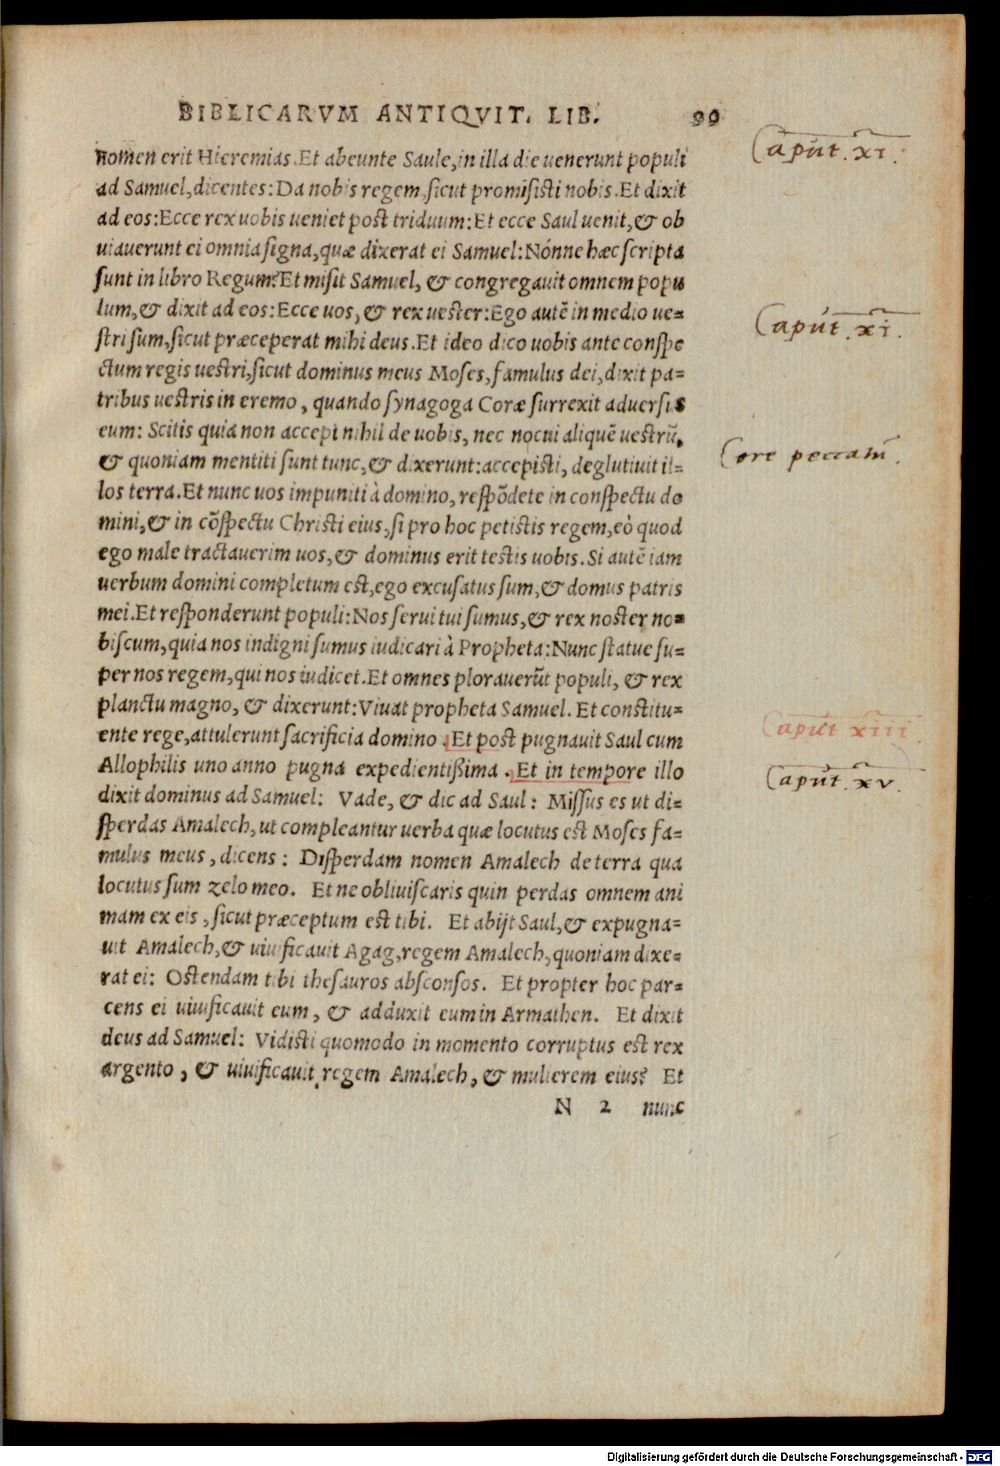 BIBLICARVM ANTIQVIT. LIB. 99
nomen erit Hieremias. Et abeunte Saule, in illa die uenerunt populi
ad Samuel, dicentes: Da nobis regem, sicut promisisti nobis. Et dixit
ad eos: Ecce rex uobis ueniet post triduum: Et ecce Saul uenit, & ob
uiauerunt ei omnia signa, quæ dixerat ei Samuel: Nónne hæc scripta
sunt in libro Regum? Et misit Samuel, & congregauit omnem popu
lum, & dixit ad eos: Ecce uos, & rex uester: Ego autē in medio ue-
stri sum, sicut præceperat mihi deus. Et ideo dico uobis ante conspe
ctum regis uestri, sicut dominus meus Moses, famulus dei, dixit pa-
tribus uestris in eremo, quando synagoga Coræ surrexit aduersus
eum: Scitis quia non accepi nihil de uobis, nec nocui aliquē uestrū,
& quoniam mentiti sunt tunc, & dixerunt: accepisti, deglutiuit il-
los terra. Et nunc uos impuniti à domino, respōdete in conspectu do
mini, & in cōspectu Christi eius, si pro hoc petistis regem, eò quod
ego male tractauerim uos, & dominus erit testis uobis. Si autē iam
uerbum domini completum est, ego excusatus sum, & domus patris
mei. Et responderunt populi: Nos serui tui sumus, & rex noster no-
biscum, quia nos indigni sumus iudicari à Propheta: Nunc statue su-
per nos regem, qui nos iudicet. Et omnes plorauerūt populi, & rex
planctu magno, & dixerunt: Viuat propheta Samuel. Et constitu-
ente rege, attulerunt sacrificia domino. Et post pugnauit Saul cum
Allophilis uno anno pugna expedientißima. Et in tempore illo
dixit dominus ad Samuel: Vade, & dic ad Saul: Missus es ut di-
sperdas Amalech, ut compleantur uerba quæ locutus est Moses fa-
mulus meus, dicens: Disperdam nomen Amalech de terra qua
locutus sum zelo meo. Et ne obliuiscaris quin perdas omnem ani
mam ex eis, sicut præceptum est tibi. Et abijt Saul, & expugna-
uit Amalech, & uiuificauit Agag, regem Amalech, quoniam dixe-
rat ei: Ostendam tibi thesauros absconsos. Et propter hoc par-
cens ei uiuificauit eum, & adduxit eum in Armathen. Et dixit
deus ad Samuel: Vidisti quomodo in momento corruptus est rex
argento, & uiuificauit regem Amalech, & mulierem eius? Et
N 2 nunc
Caput .XI.
Caput .XI.
Core peccatū.
Caput XIII
Caput .XV.
Digitalisierung gefördert durch die Deutsche Forschungsgemeinschaft - DFG